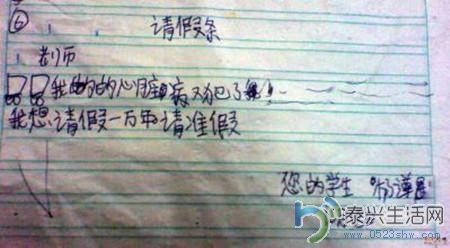 ⑥ 请假条
老师
我的心脏病又犯了
我想请假一万年请准假
您的学生
泰兴生活网
www.0523shw.com